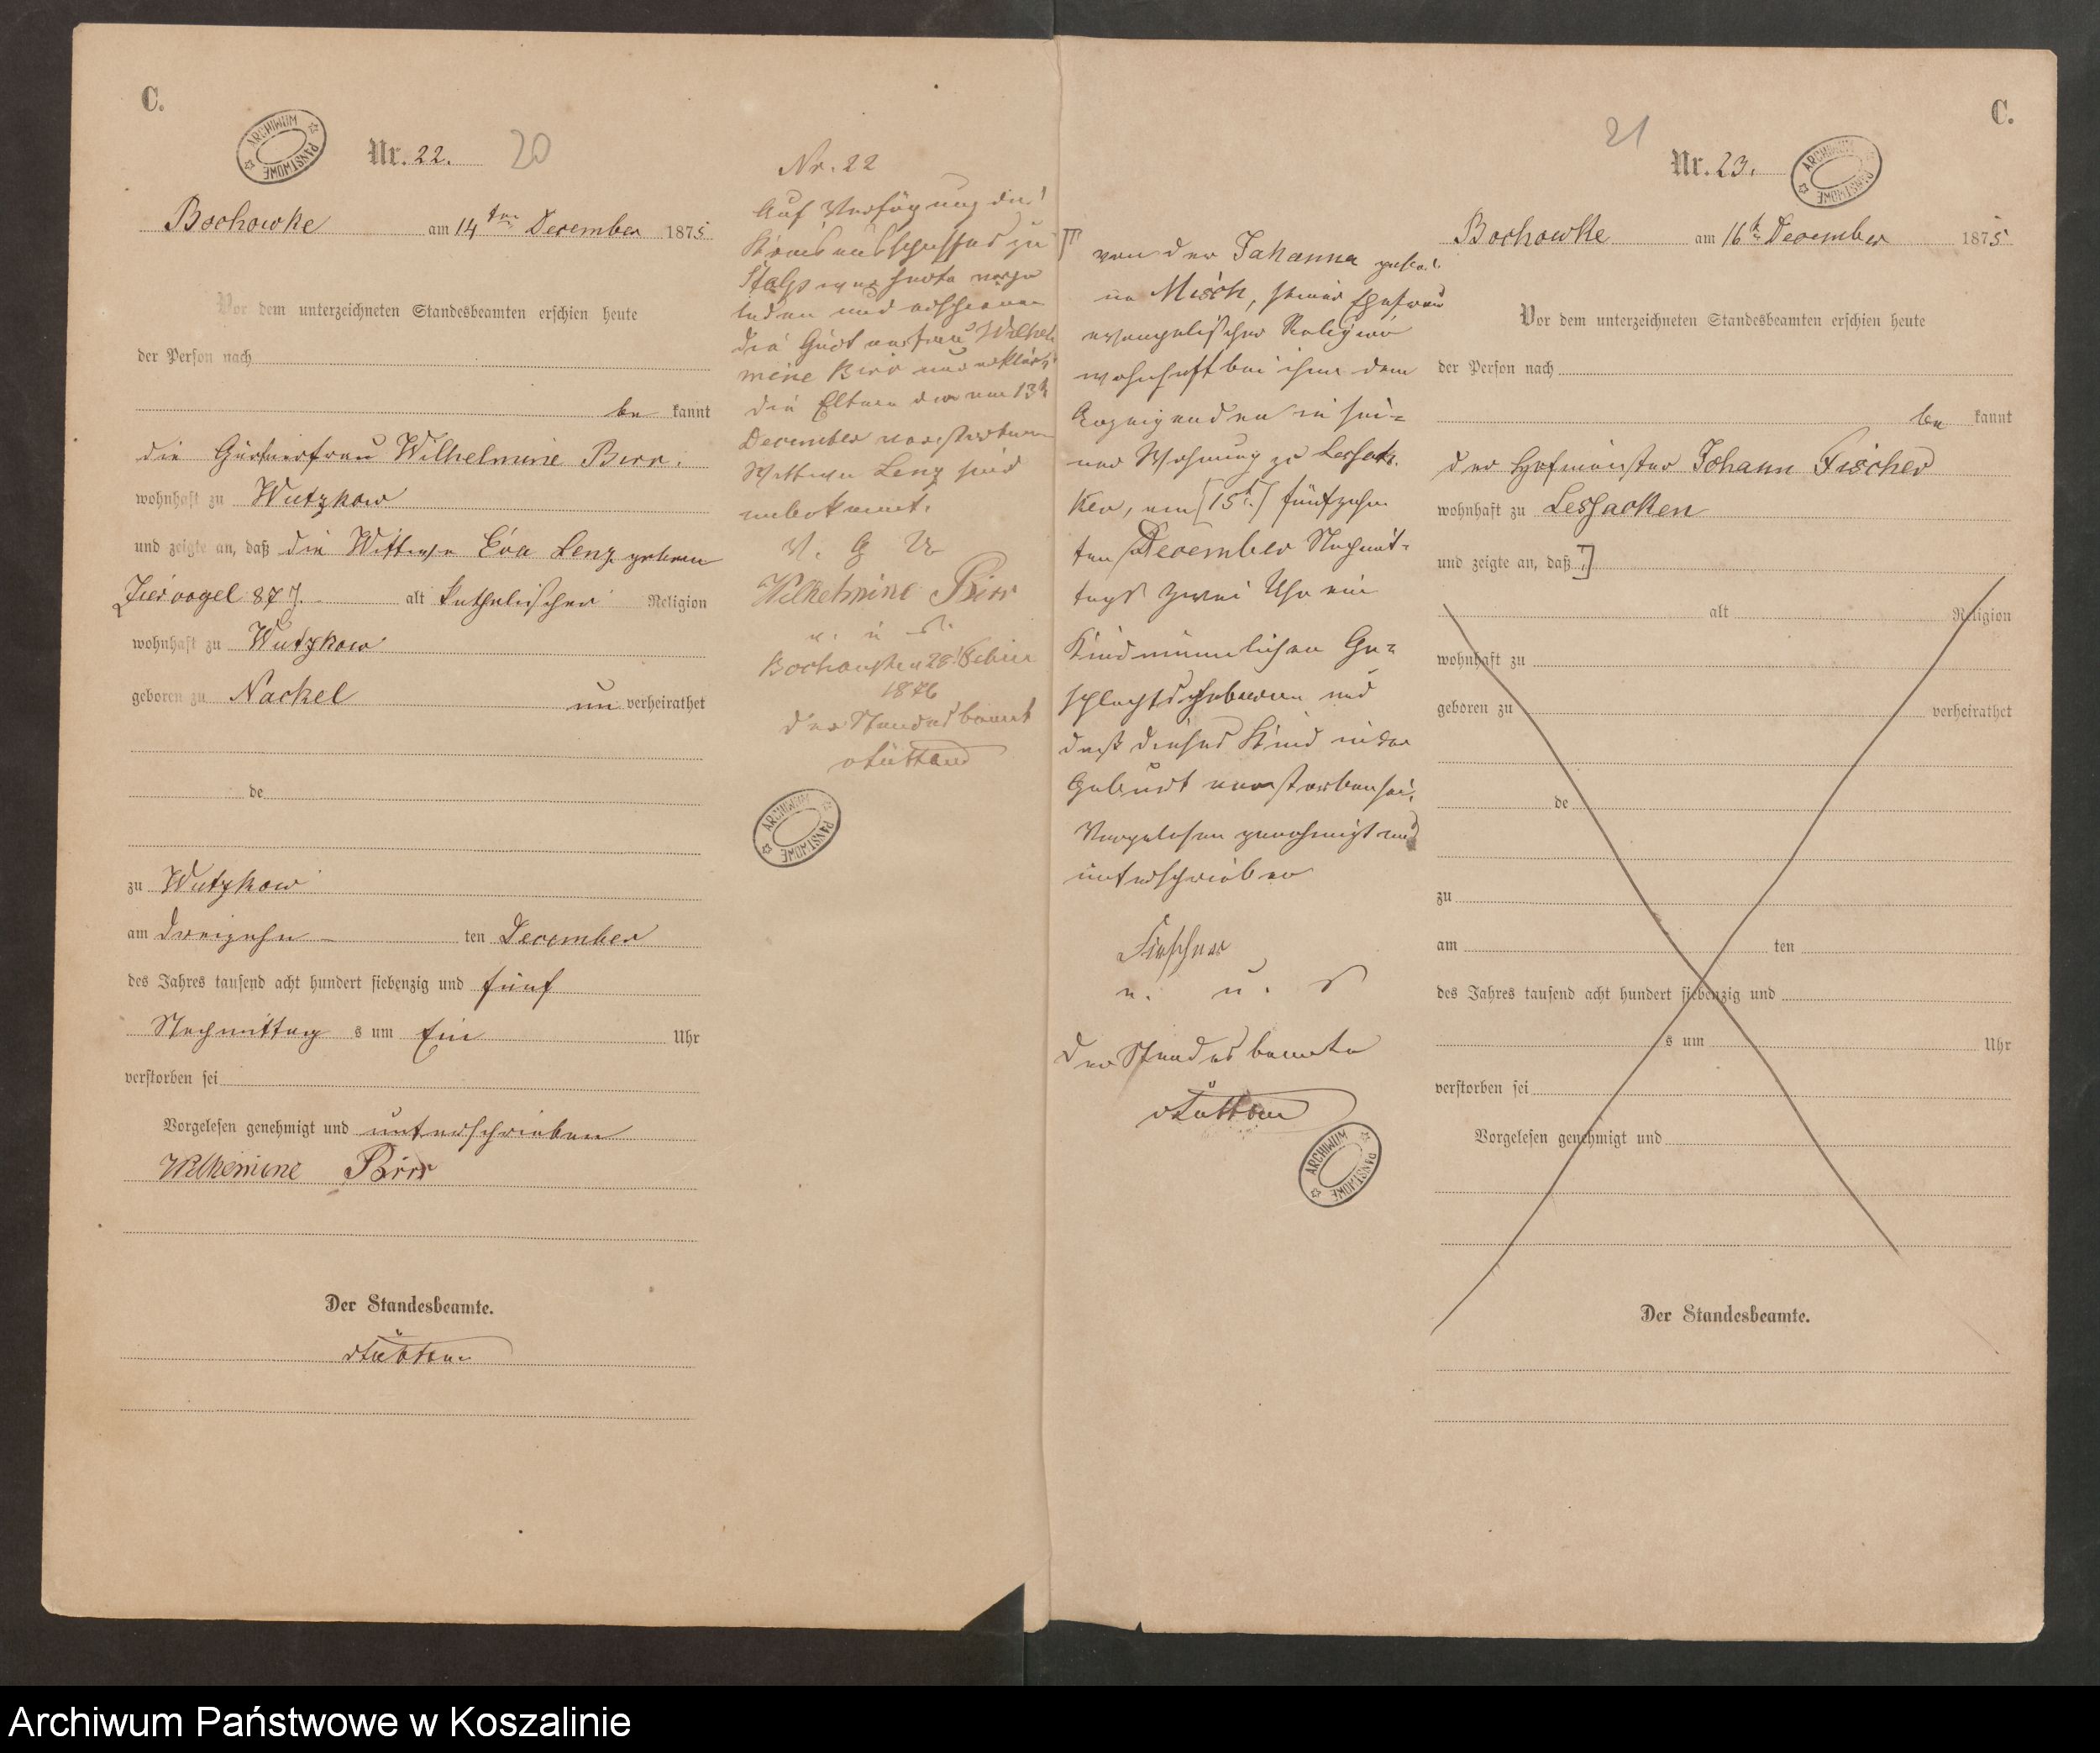 C.
ARCHIWUM PAŃSTWOWE
Nr. 22. 20
Bochowke am 14ten December 1875
Vor dem unterzeichneten Standesbeamten erschien heute
der Person nach
be kannt
die Gärtnerfrau Wilhelmine Birr.
wohnhaft zu Wutzkow
und zeigte an, daß die Wittwe Eva Lenz geborn
Ziervogel 87 J. alt katholischer Religion
wohnhaft zu Wutzkow
geboren zu Nackel un verheirathet
de
zu Wutzkow
am dreizehn ten December
des Jahres tausend acht hundert siebenzig und fünf
Nachmittag s um Ein Uhr
verstorben sei
Vorgelesen genehmigt und unterschrieben
Wilhemine Birr
Der Standesbeamte.
Nr. 22
Auf Verfügung des
Kreisausschusses zu
Stolp war heute vorge
laden und erschienen
die Gärtnerfrau Wilhel
mine Birr und erklärt
die Eltern der am 13t
December verstorbenen
Wittwe Lenz sind
unbekannt.
V. G. U.
Wilhelmine Birr
a. u. s.
1876
der Standesbeamt
ARCHIWUM PAŃSTWOWE
von der Johanna gebo
ne Misch, seiner Ehefrau
evangelischer Religion
wohnhaft bei ihm dem
Anzeigenden in sei=
ner Wohnung zu Lessak
ken, am [15t.] fünfzehn
ten December Nachmit=
tags zwei Uhr ein
Kind männlichen Ge=
schlechts geboren und
daß dieses Kind in der
Geburt verstorben sei.
Vorgelesen genehmigt und
unterschrieben
Fischer
a. u. s
der Standesbeamte
ARCHIWUM PAŃSTWOWE
C.
21
Nr. 23.
ARCHIWUM PAŃSTWOWE
Bochowke am 16t December 1875
Vor dem unterzeichneten Standesbeamten erschien heute
der Person nach
be kannt
der Hofmeister Johann Fischer
wohnhaft zu Lessacken
und zeigte an, daß
alt Religion
wohnhaft zu
geboren zu verheirathet
de
zu
am ten
des Jahres tausend acht hundert siebenzig und
s um Uhr
verstorben sei
Vorgelesen genehmigt und
Der Standesbeamte.
Archiwum Państwowe w Koszalinie